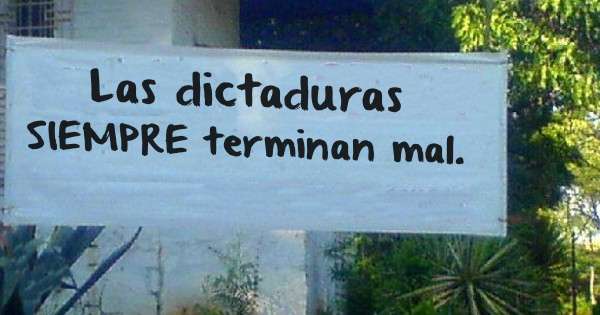 Las dictaduras
SIEMPRE terminan mal.